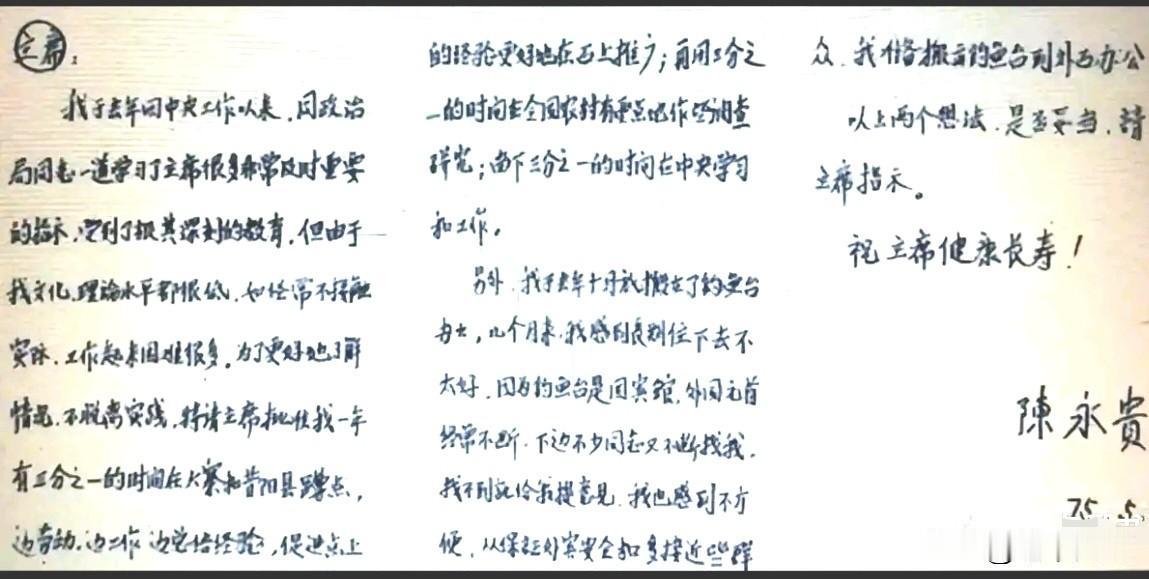 主席：
我于去年回中央工作以来，同政治
局同志一道学习了主席很多非常及时重要
的指示，受到了极其深刻的教育，但由于
我文化、理论水平都很低，如经常不接触
实际，工作起来困难很多。为了更好地了解
情况，不脱离实践，特请主席批准我一年
有三分之一的时间在大寨和昔阳县蹲点，
边劳动，边工作，边总结经验，促进点上
的经验更好地在面上推广；再用三分之
一的时间去全国农村有重点地作些调查
研究；留下三分之一的时间在中央学习
和工作。
另外，我于去年十月就搬在了钓鱼台
办公，几个月来，我感到长期住下去不
太好，因为钓鱼台是国宾馆，外国元首
经常不断，下边不少同志又不断找我，
找不到就给我提意见，我也感到不方
便，从保证外宾安全和多接近些群
众，我准备搬出钓鱼台到外面办公
以上两个想法，是否妥当，请
主席指示。
祝主席健康长寿！
陳永贵
75.5.